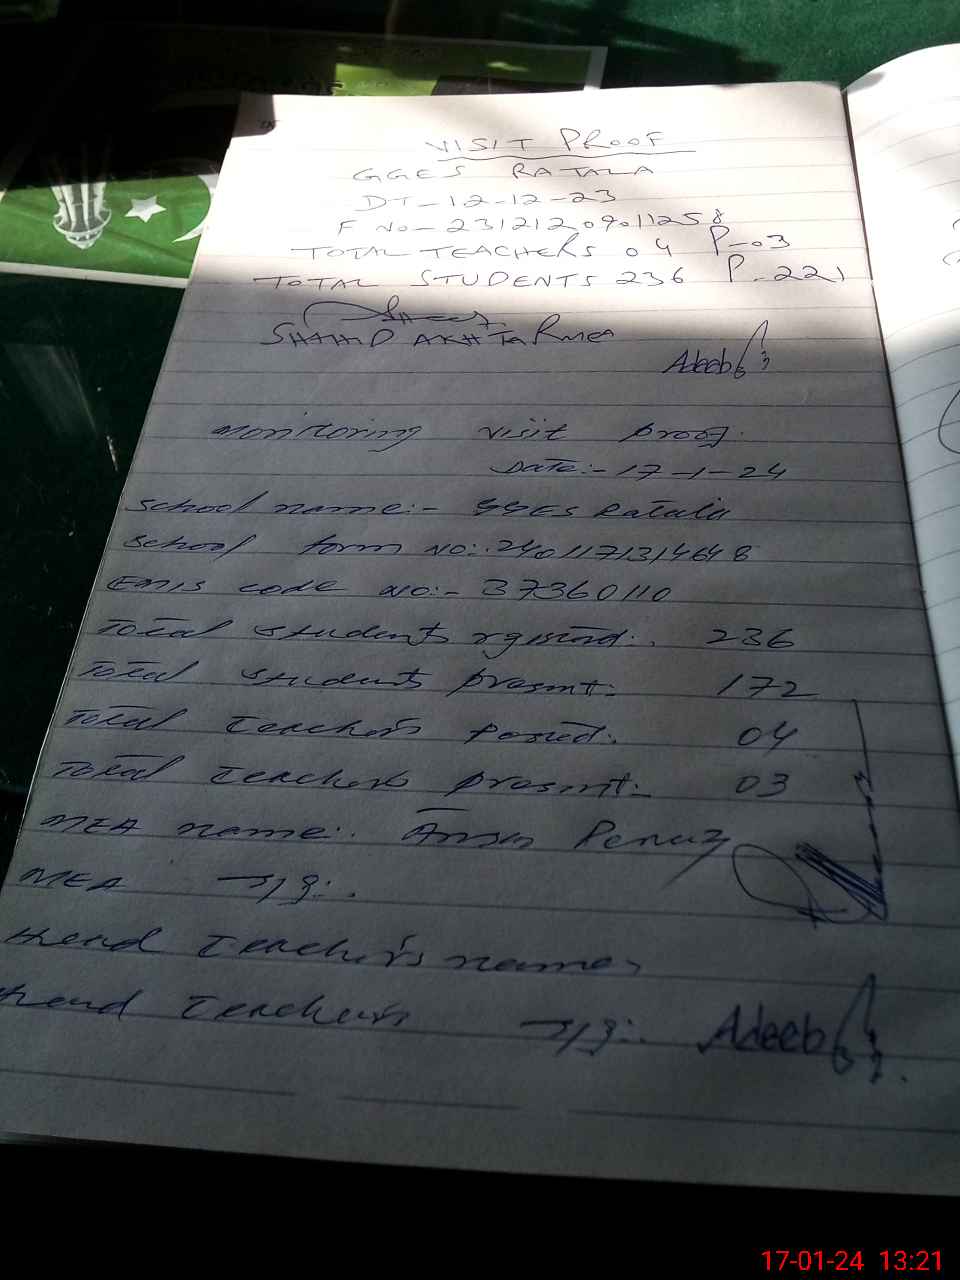 VISIT PROOF
GGES RATALA
DT-12-12-23
F NO-23121209011258
TOTAL TEACHERS 04 P-03
TOTAL STUDENTS 236 P-221
SHAHID AKHTAR MEA
Adeeb
Monitoring visit proof.
Date:- 17-1-24
School name:- GGES Ratala
School form No:. 2401171314648
EMIS code no:- 37360110
Total students rgistrd:. 236
Total students present:- 172
Total teachers posted:. 04
Total teachers present:- 03
MEA name:.
MEA sig:.
Head Teacher's name:
Head Teacher's sig:. Adeeb
17-01-24 13:21